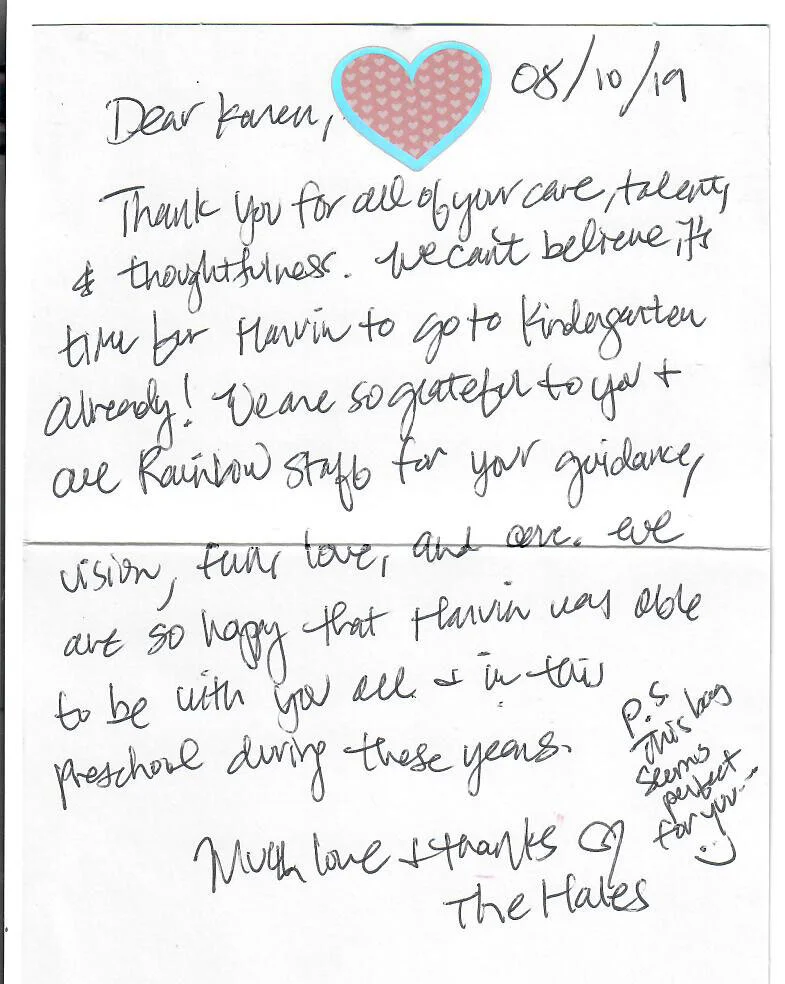 08/10/19
Dear Karen,
Thank you for all of your care, talent,
& thoughtfulness. We can't believe it's
time for Harvin to go to Kindergarten
already! We are so grateful to you +
all Rainbow staff for your guidance,
vision, fun, love, and care. We
are so happy that Harvin was able
to be with you all + in this
preschool during these years.
Much love + thanks
The Hales
P.S
This bag
seems
perfect
for you...
:)